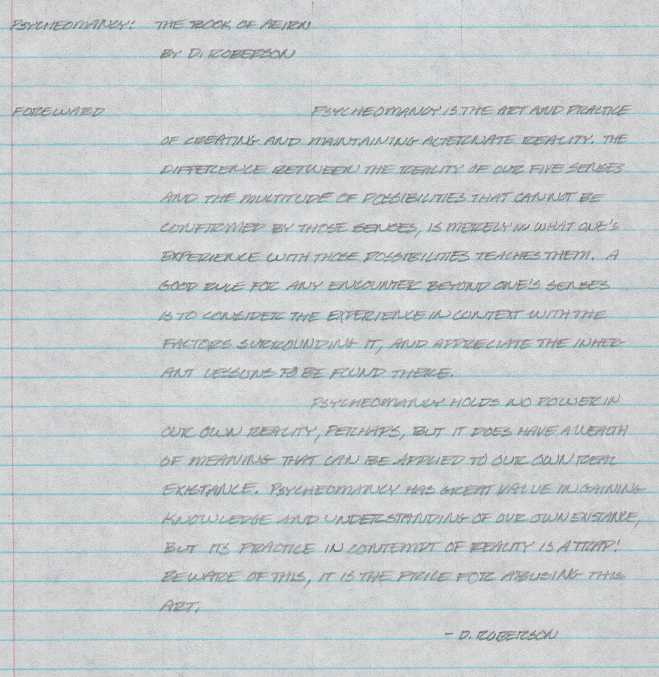 PSYCHEOMANCY: THE BOOK OF AEIRN
BY D. ROBERSON
FOREWARD PSYCHEOMANCY IS THE ART AND PRACTICE
OF CREATING AND MAINTAINING ALTERNATE REALITY. THE
DIFFERENCE BETWEEN THE REALITY OF OUR FIVE SENSES
AND THE MULTITUDE OF POSSIBILITIES THAT CANNOT BE
CONFIRMED BY THOSE SENSES, IS MERELY IN WHAT ONE'S
EXPERIENCE WITH THOSE POSSIBILITIES TEACHES THEM. A
GOOD RULE FOR ANY ENCOUNTER BEYOND ONE'S SENSES
IS TO CONSIDER THE EXPERIENCE IN CONTEXT WITH THE
FACTORS SURROUNDING IT, AND APPRECIATE THE INHER-
ANT LESSONS TO BE FOUND THERE.
PSYCHEOMANCY HOLDS NO POWER IN
OUR OWN REALITY, PERHAPS, BUT IT DOES HAVE A WEALTH
OF MEANING THAT CAN BE APPLIED TO OUR OWN REAL
EXISTANCE. PSYCHEOMANCY HAS GREAT VALUE IN GAINING
KNOWLEDGE AND UNDERSTANDING OF OUR OWN EXISTANCE,
BUT ITS PRACTICE IN CONTEMPT OF REALITY IS A TRAP!
BEWARE OF THIS, IT IS THE PRICE FOR ABUSING THIS
ART.
- D. ROBERSON